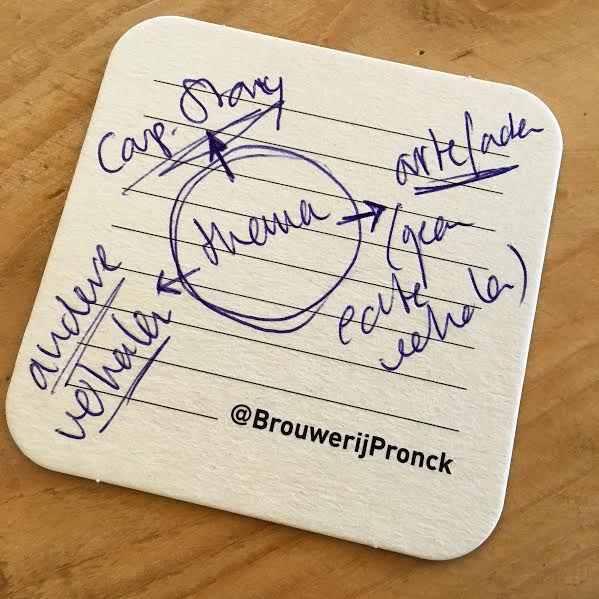 Corp. Story
artefacten
thema
(geen
echte
verhalen)
andere
verhalen
@BrouwerijPronck